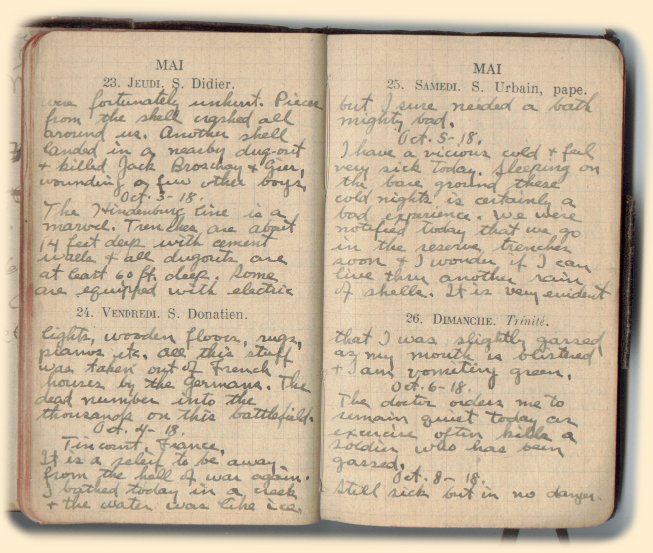 MAI
23. JEUDI. S. Didier.
were fortunately unhurt. Pieces
from the shell crashed all
around us. Another shell
landed in a nearby dug-out
+ killed Jack Broschay + Gier,
wounding a few other boys.
Oct. 3-18.
The Hindenburg line is a
marvel. Trenches are about
14 feet deep with cement
walls + all dugouts are
at least 60 ft. deep. Some
are equipped with electric
24. VENDREDI. S. Donatien.
lights, wooden floors, rugs,
pianos, etc. All this stuff
was taken out of French
houses by the Germans. The
dead number into the
thousands on this battlefield.
Oct. 4-18.
Tincourt, France.
It is a relief to be away
from the hell of war again.
I bathed today in a creek
+ the water was like ice,
MAI
25. SAMEDI. S. Urbain, pape.
but I sure needed a bath
mighty bad.
Oct. 5-18.
I have a vicious cold + feel
very sick today. Sleeping on
the bare ground these
cold nights is certainly a
bad experience. We were
notified today that we go
in the reserve trenches
soon + I wonder if I can
live thru another rain
of shells. It is very evident
26. DIMANCHE. Trinité.
that I was slightly gassed
as my mouth is blistered
+ I am vomiting green.
Oct. 6-18.
The doctor orders me to
remain quiet today as
exercise often kills a
soldier who has been
gassed.
Oct. 8-18.
Still sick but in no danger.